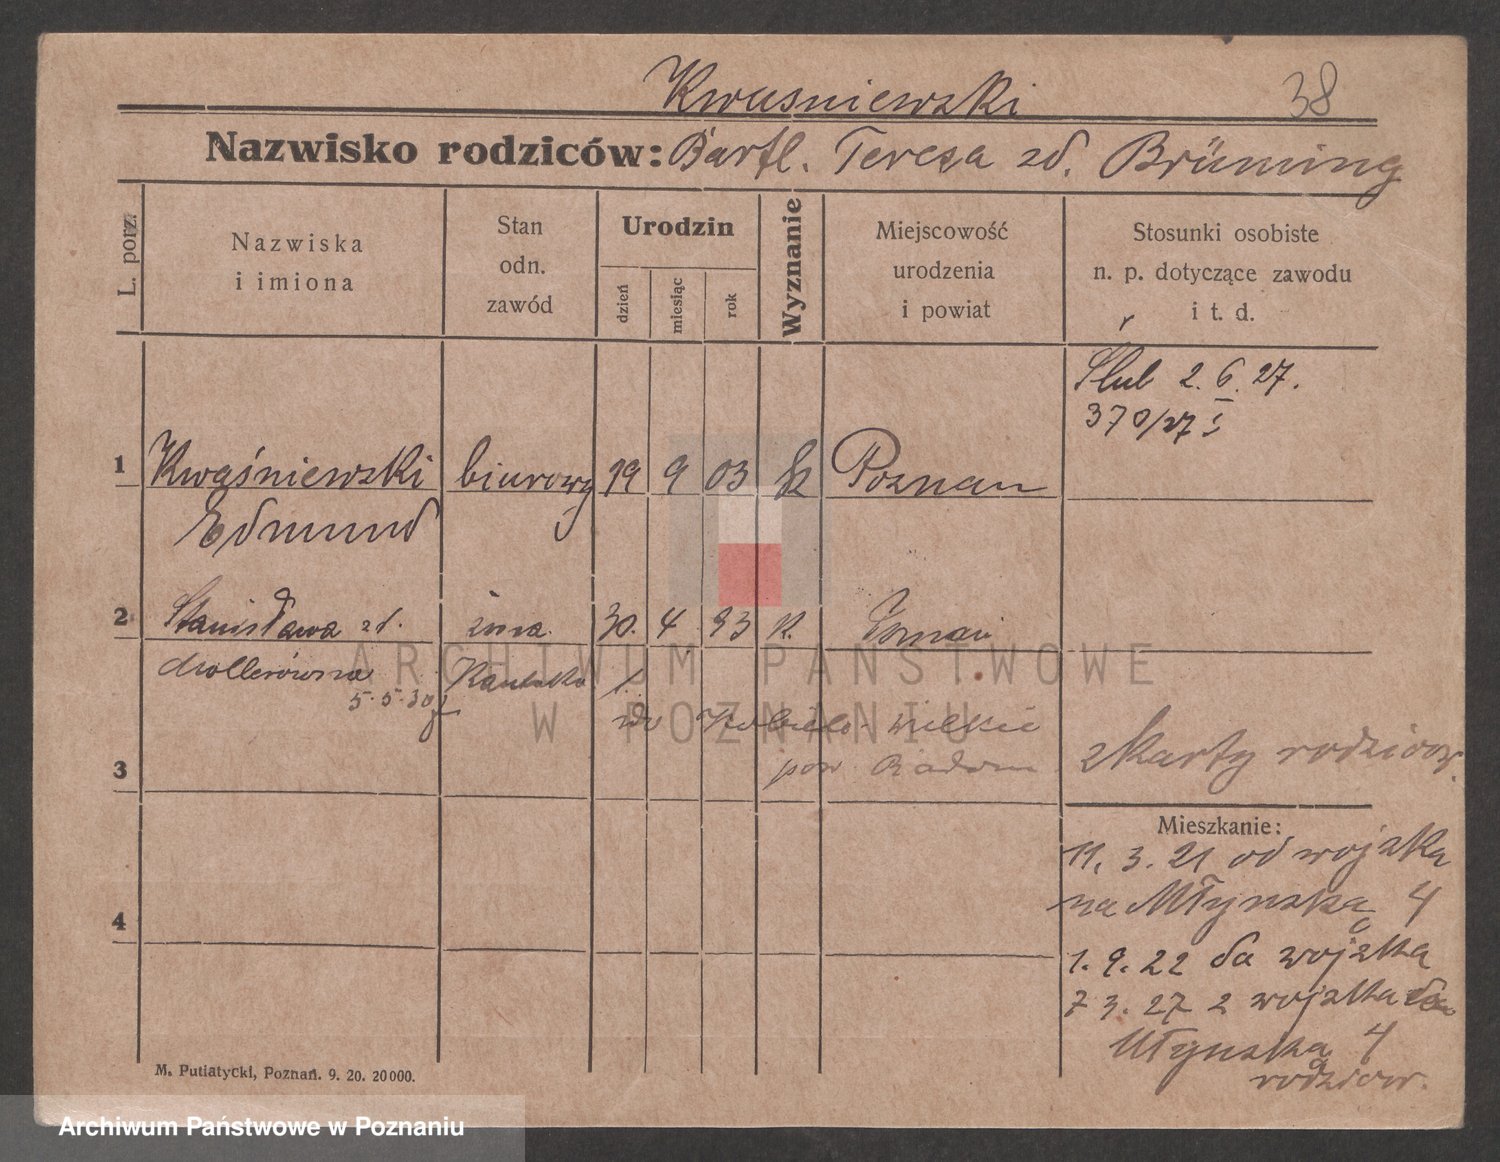 Kwasniewski
38
Nazwisko rodziców: Bartl. Teresa zd. Brüming
L. porz.
Nazwiska
i imiona
Stan
odn.
zawód
Urodzin
dzień
miesiąc
rok
Wyznanie
Miejscowość
urodzenia
i powiat
Stosunki osobiste
n. p. dotyczące zawodu
i t. d.
Ślub 2. 6. 27.
370/27
1 Kwaśniewski biurowy 19 9 03 k Poznan
Edmund
2 Stanisława zd. żona 30. 4 93 K.
5.5.30
Wielkie
3 pow Radom
z karty rodziców.
Mieszkanie:
11. 3. 21 od wojska
na Młyńską 4
4
1. 9. 22 do wojska
7 3. 27 z wojska
Młynska 4
rodziców.
M. Putiatycki, Poznań. 9. 20. 20000.
ARCHIWUM PAŃSTWOWE
W POZNANIU
Archiwum Państwowe w Poznaniu